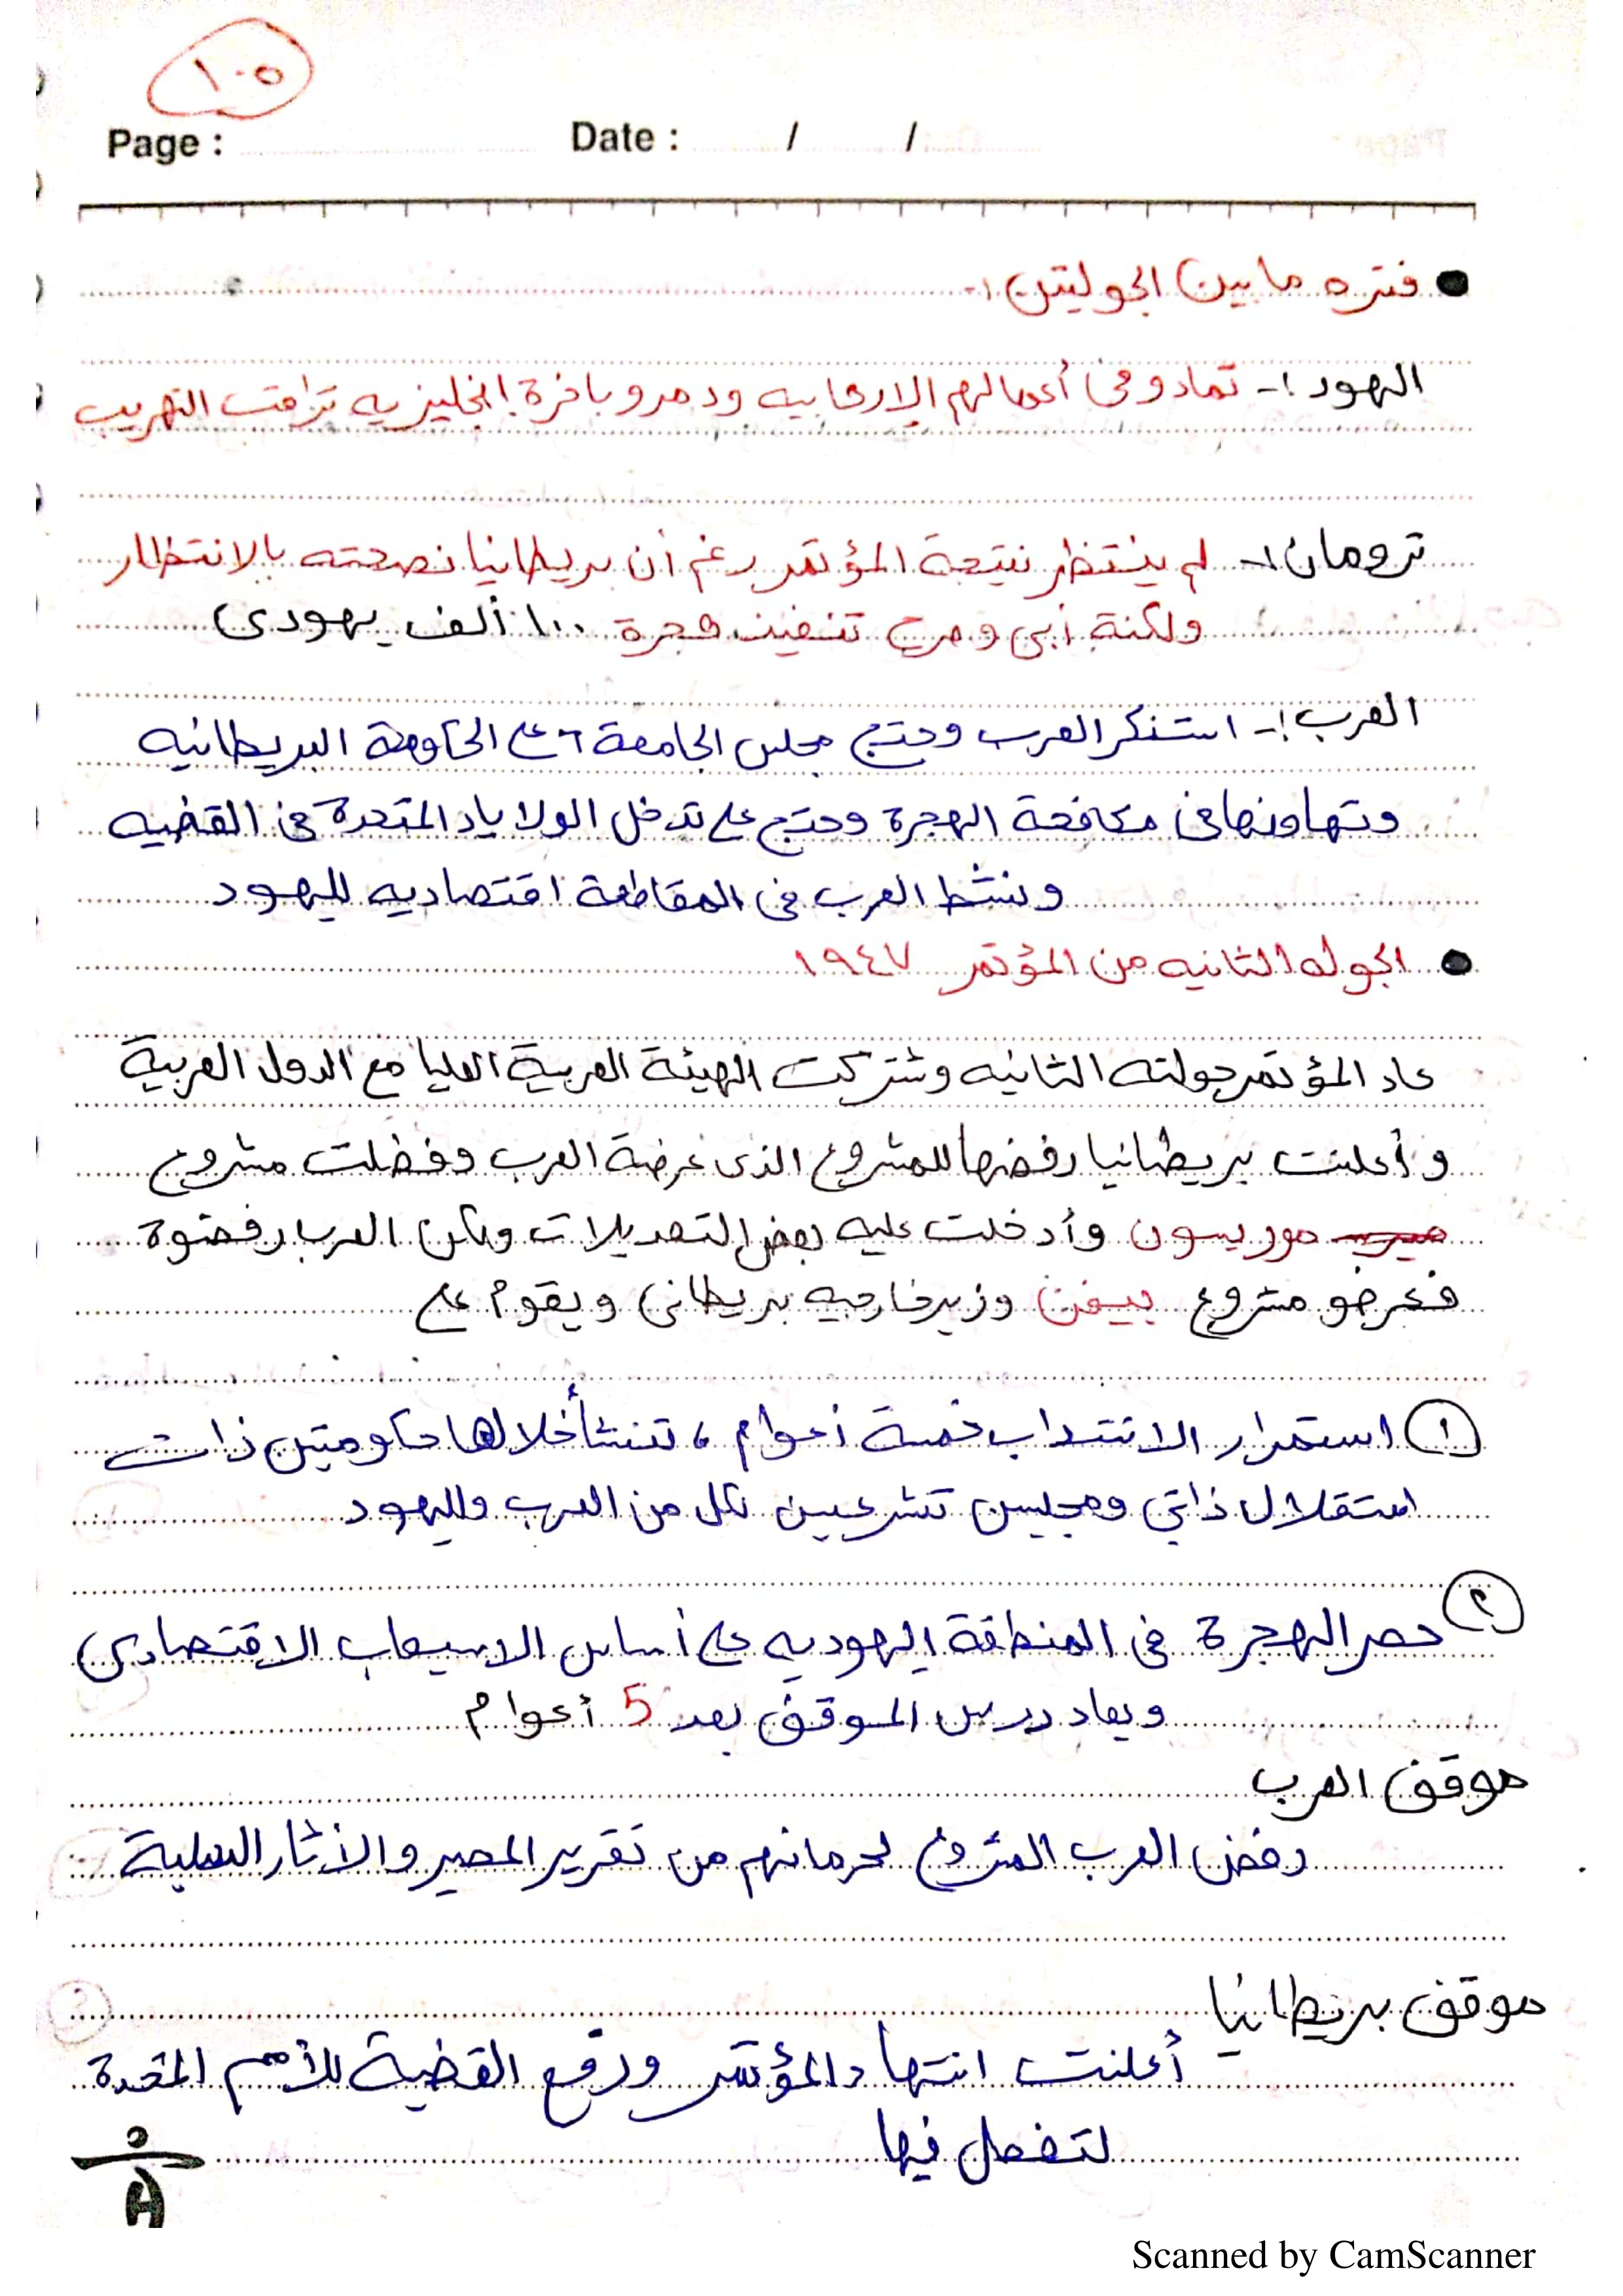 ١٠٥
Page : Date : / /
● فتره ما بين الجولتين :-
اليهود :- تمادو فى أعمالهم الإرهابيه ودمرو باخرة انجليزيه تراقب التهريب
ترومان :- لم ينتظر نتيجة المؤتمر رغم أن بريطانيا نصحته بالانتظار
ولكنة أبى و تنفيذ هجرة ١٠٠ ألف يهودى
العرب :- استنكر العرب وحتج مجلس الجامعة على الحكومة البريطانيه
وتهاونها فى مكافحة الهجرة وحتج على تدخل الولاياد المتحدة فى القضيه
ونشط العرب فى المقاطعة اقتصاديه لليهود
● الجوله الثانيه من المؤتمر ١٩٤٧
عاد المؤتمر جولته الثانيه وشتركت الهيئة العربية العليا مع الدول العربية
وأعلنت بريطانيا رفضها للمشروع الذى عرضة العرب وفضلت مشروع
موريسون وأدخلت عليه بعض التعديلات ولكن العرب رفضوة
فعرضو مشروع بيفن وزير خارجيه بريطانى ويقوم على
١ استمرار الانتداب خمسة أعوام ، تنشأ خلالها حكومتين ذات
استقلال ذاتي ومجلسين تشرعيين لكل من العرب واليهود
٢ حصر الهجرة فى المنطقة اليهوديه على أساس الاسيعاب الاقتصادى
ويعاد درس الموقف بعد 5 أعوام
موقف العرب
رفض العرب المشروع لحرمانهم من تقرير المصير والأثار السلبية
موقف بريطانيا
أعلنت انتهاء المؤتمر ورفع القضية للأمم المتحدة
لتفصل فيها
Scanned by CamScanner